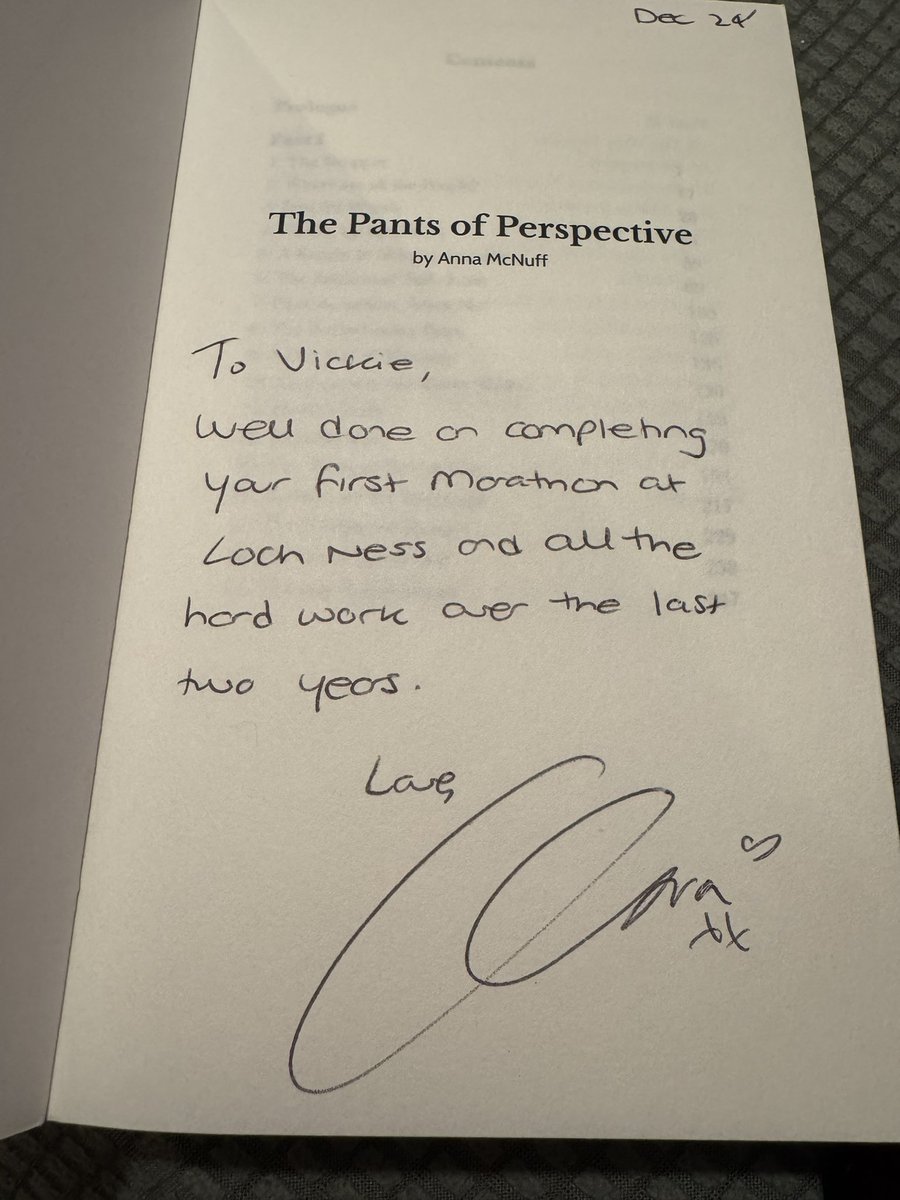 Dec 24
The Pants of Perspective
by Anna McNuff
To Vickie,
Well done on completing
your first Marathon at
Loch Ness and all the
hard work over the last
two years.
Love,
Anna
xx